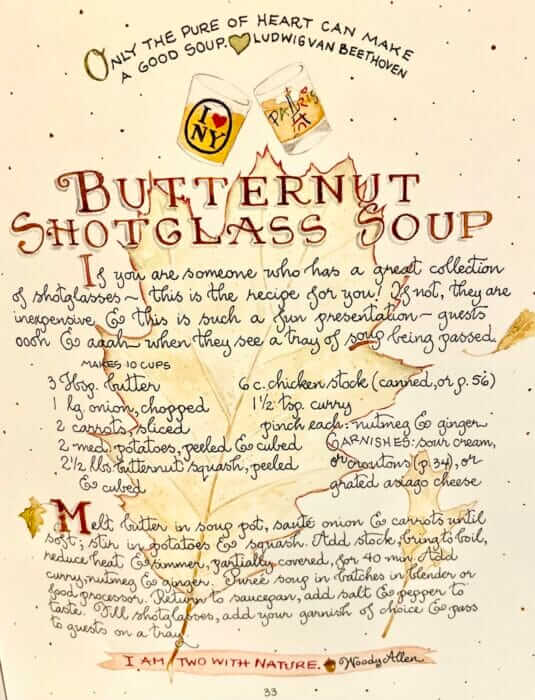 ONLY THE PURE OF HEART CAN MAKE
A GOOD SOUP. LUDWIG VAN BEETHOVEN
I ♥
NY
PARIS
BUTTERNUT
SHOTGLASS SOUP
If you are someone who has a great collection
of shotglasses ~ this is the recipe for you! If not, they are
inexpensive & this is such a fun presentation ~ guests
oooh & aaah ~ when they see a tray of soup being passed.
MAKES 10 CUPS
3 Tbsp. butter
1 lg. onion, chopped
2 carrots, sliced
2 med. potatoes, peeled & cubed
2 1/2 lbs. butternut squash, peeled
& cubed
6 c. chicken stock (canned, or p. 56)
1 1/2 tsp. curry
pinch each: nutmeg & ginger
GARNISHES: sour cream,
or croutons (p. 34), or
grated asiago cheese
Melt butter in soup pot, sauté onion & carrots until
soft; stir in potatoes & squash. Add stock, bring to boil,
reduce heat & simmer, partially covered, for 40 min. Add
curry, nutmeg & ginger. Purée soup in batches in blender or
food processor. Return to saucepan, add salt & pepper to
taste. Fill shotglasses, add your garnish of choice & pass
to guests on a tray.
I AM TWO WITH NATURE. Woody Allen
33